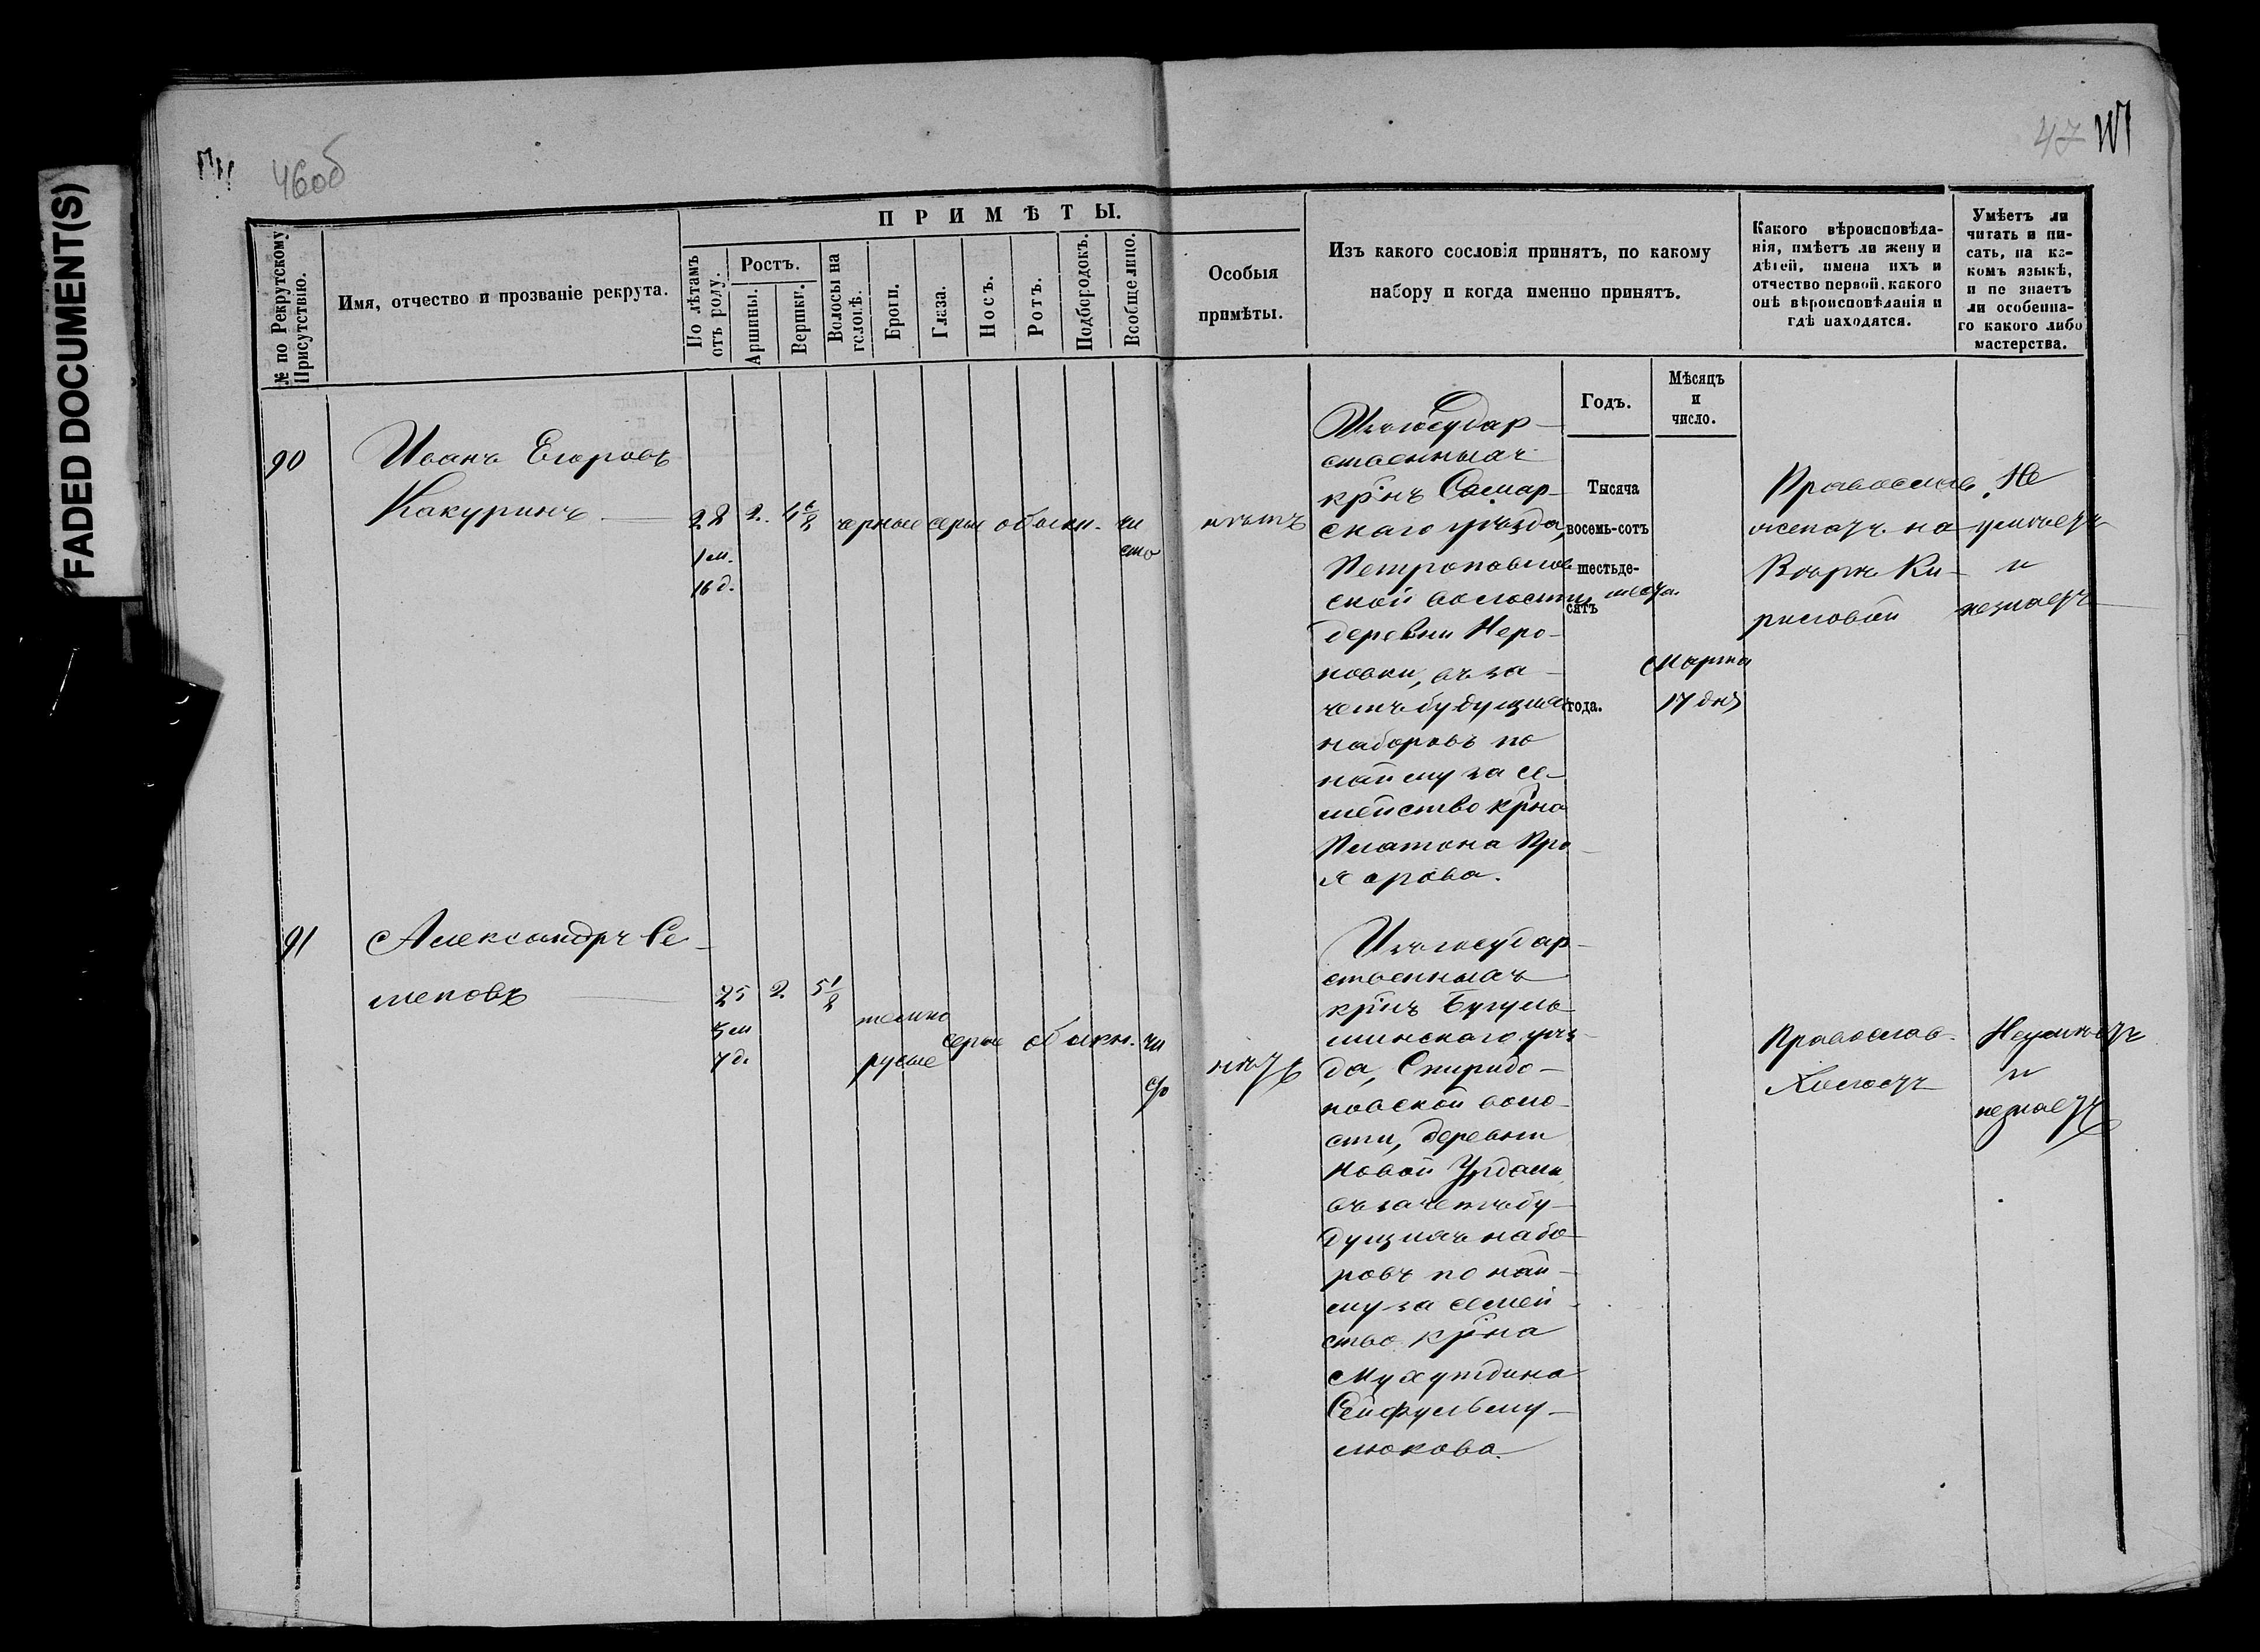 FADED DOCUMENT(S)
46об
47
ПРИМѢТЫ.
№ по Рекрутскому Присутствію.
Имя, отчество и прозваніе рекрута.
По лѣтамъ отъ роду.
Ростъ.
Аршины.
Вершки.
Волосы на головѣ.
Брови.
Глаза.
Носъ.
Ротъ.
Подбородокъ.
Вообще лицо.
Особыя
примѣты.
Изъ какого сословія принятъ, по какому
набору и когда именно принятъ.
Годъ.
Мѣсяцъ
и
число.
Какого вѣроисповѣда-
нія, имѣетъ ли жену и
дѣтей, имена ихъ и
отчество первой, какого
онѣ вѣроисповѣданія и
гдѣ находятся.
Умѣетъ ли
читать и пи-
сать, на ка-
комъ языкѣ,
и не знаетъ
ли особенна-
го какого либо
мастерства.
90
Иванъ Егоровъ
Какуринъ
22
1 м.
16 д.
2.
4 6/8
черные
серые
обыкн.
чи
сто
нѣтъ
Изъ государ-
ственныхъ
кр̃нъ Самар-
скаго уѣзда,
Петропавлов-
ской волости,
деревни Неро-
новки, въ за-
четъ будущихъ
наборовъ по
найму за се-
мейство кр̃на
Платона Про-
хорова.
Тысяча
восемь-сотъ
шестьде-
сятъ
шеста.
года.
Марта
17 дня
Православ.
женатъ на
Вѣрѣ Ки-
риловой
Не
умѣетъ
и
незнаетъ
91
Александръ Се-
меновъ
25
7 д.
2.
5 1/8
темно
русые
серые
обыкн.
чи
сто
нѣтъ
Изъ государ-
ственныхъ
кр̃нъ Бугуль-
минскаго уѣз-
да, Спиридо-
новской воло-
сти, деревни
Новой Урдалы
въ зачетъ бу-
дущихъ набо-
ровъ по най-
му за семей-
ство кр̃на
Мухутдина
Сейфульму-
люкова.
Православ.
Холостъ
Неумѣетъ
и
незнаетъ